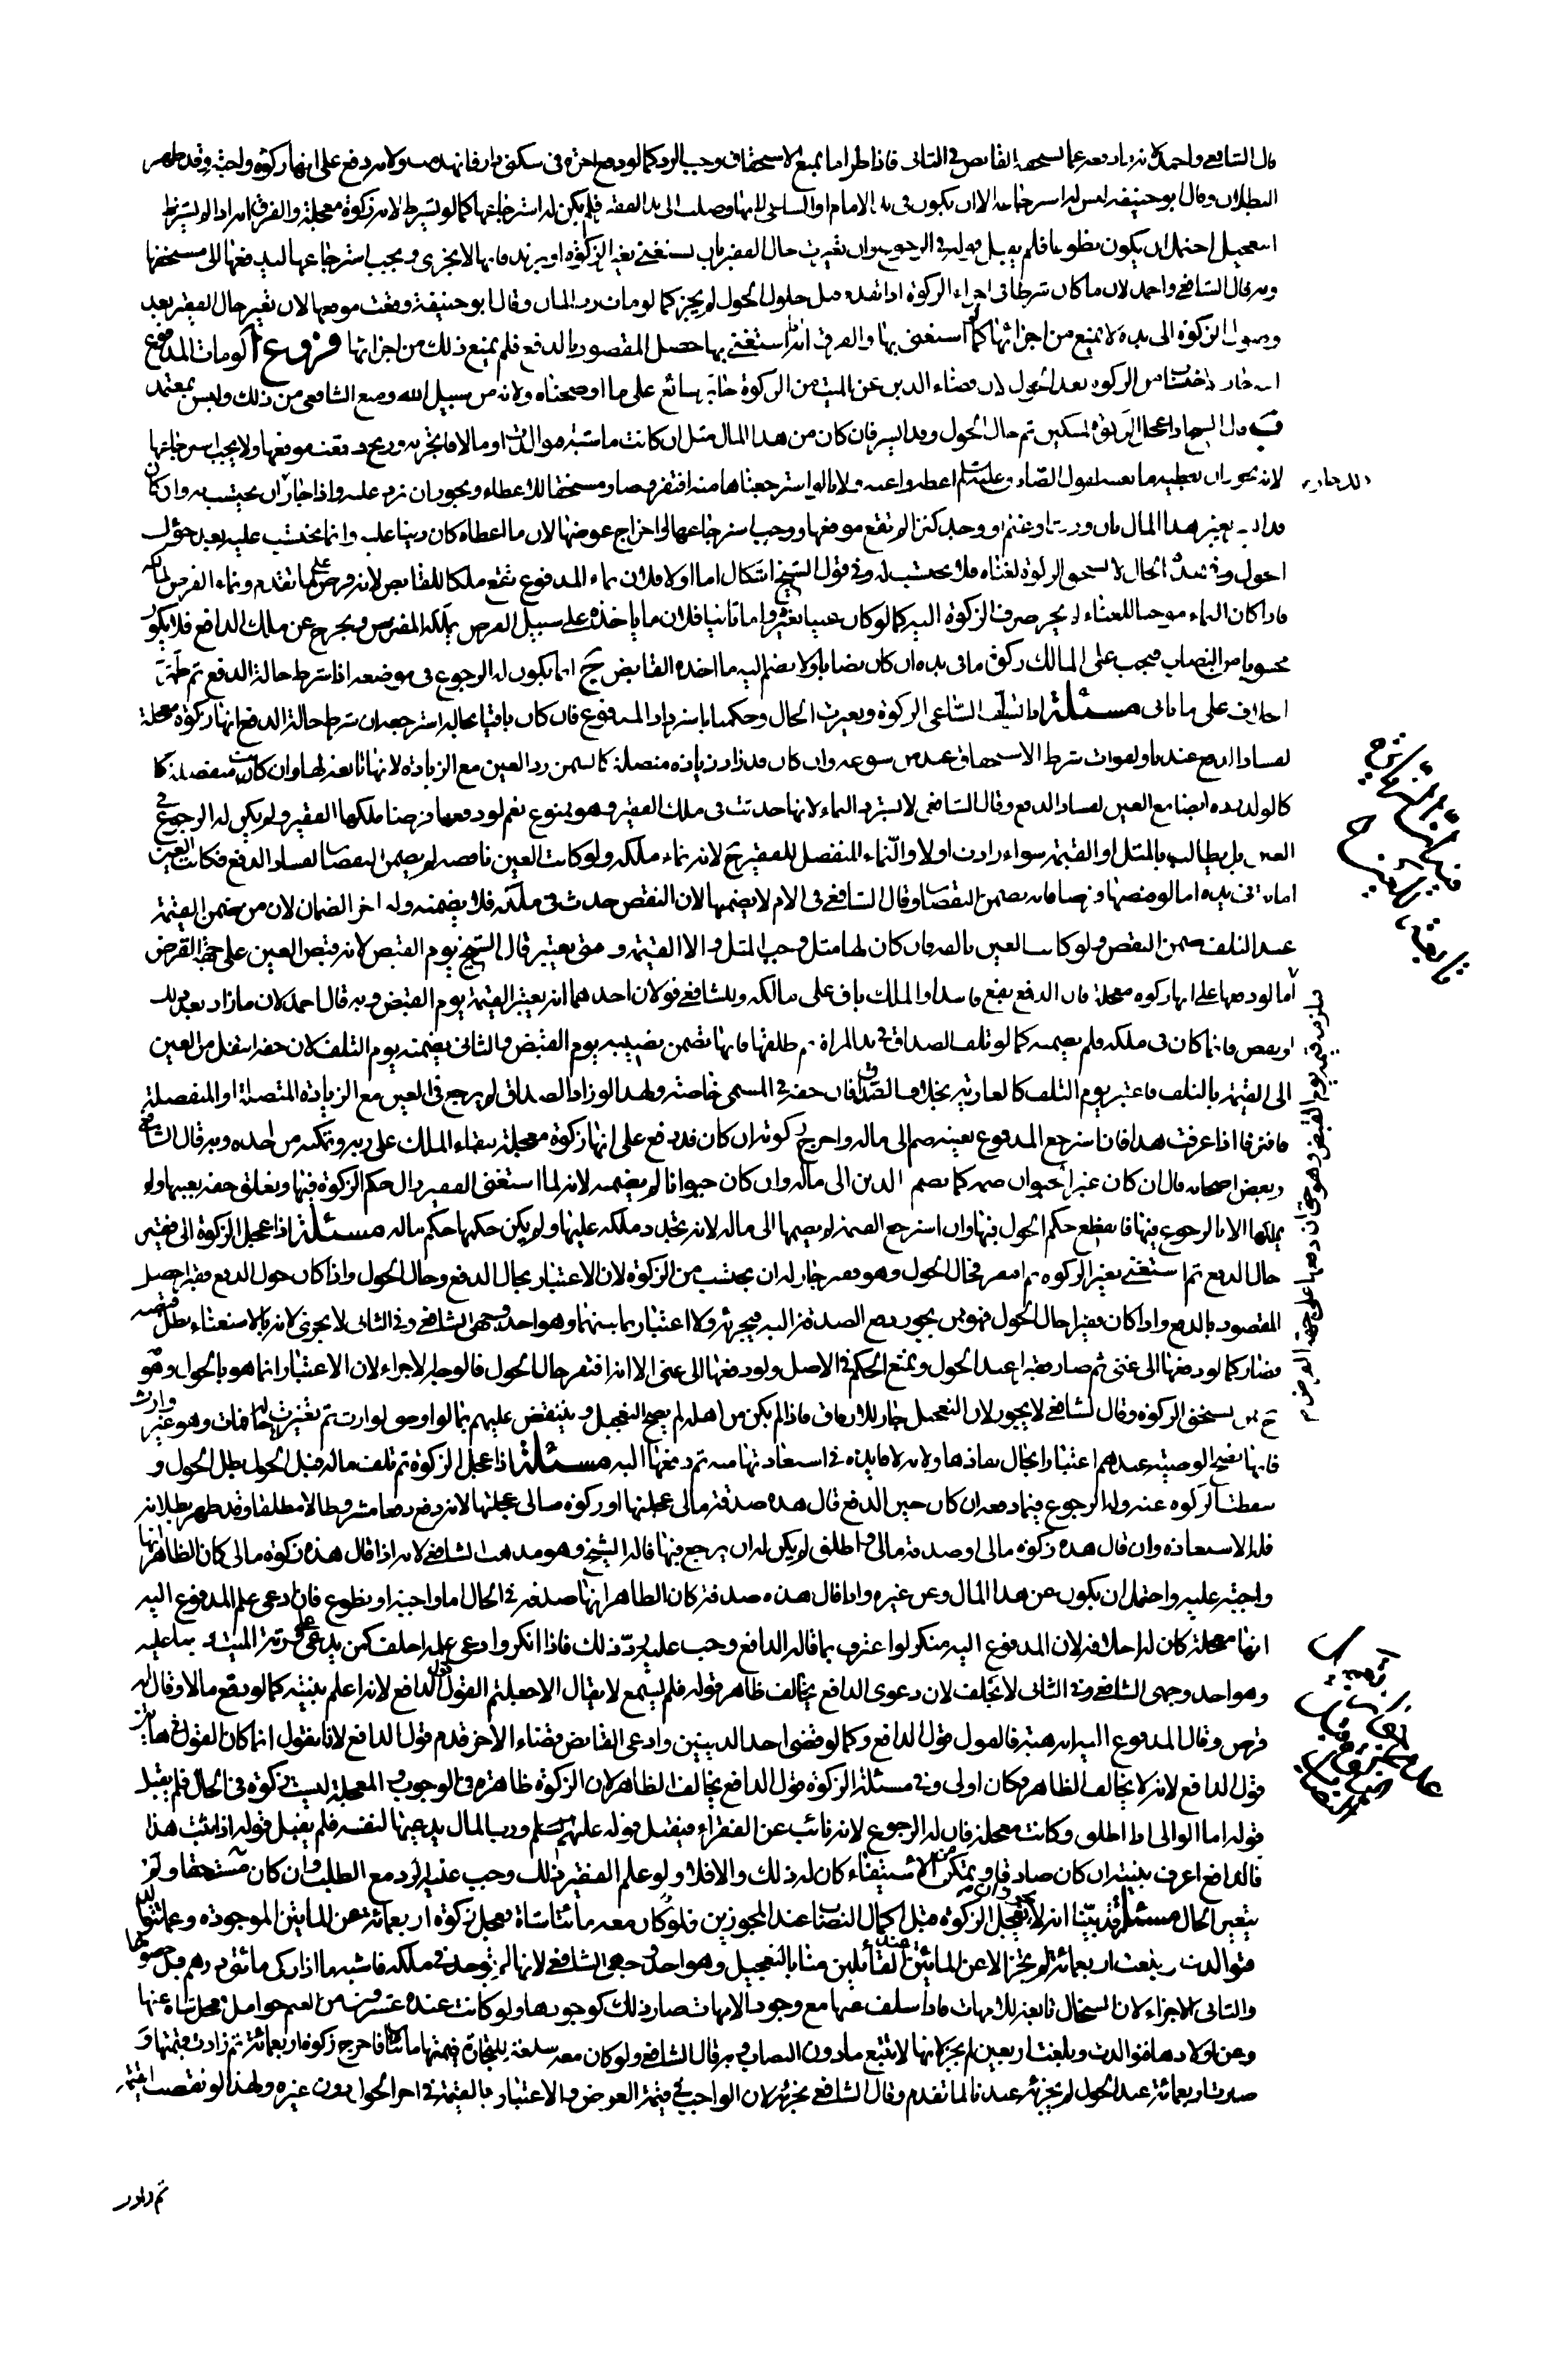 قال الشافعي واحمد لانه دفعه عما يستحقه القابض في الثاني فاذا طرا ما يمنع الاستحقاق وجب الرد كما لو دفع اجرة في سكنى دار فانهدمت ولانه دفع على انها زكوة واجبة وقد ظهر
البطلان وقال ابو حنيفه ليس له استرجاعه الا ان يكون في يد الامام او الساعي لانها وصلت الى يد الفقير فلم يكن له استرجاعها كما لو لم يشرط لانه زكوة معجلة والفرق انه اذا لم يشترط
التعجيل احتمل ان يكون تطوعا فلم يقبل قوله في الرجوع وان تغيرت حال الفقير بان يستغني بغير الزكوة او يرتد فانها لا تجزي ويجب استرجاعها ليدفعها الى مستحقها
وبه قال الشافعي واحمد لان ما كان شرطا في اجزاء الزكوة اذا تقدم قبل حلول الحول لم يجز كما لو مات رب المال وقال ابو حنيفة وقعت موقعها لان تغير حال الفقير بعد
وصول الزكوة الى يده لا يمنع من اجزائها كما لو استغنى بها والفرق انه اذا استغنى بها حصل المقصود بالدفع فلم يمنع ذلك من اجزائها فروع آ لو مات المدفوع
اليه جاز احتسابها من الزكوة بعد الحول لان قضاء الدين عن الميت من الزكوة خاصه سائغ على ما اوضحناه ولانه من سبيل الله ومنع الشافعي من ذلك وليس بمعتمد
ب قال الشيخ اذا عجل الزكوة لمسكين ثم حال الحول وقد ايسر فان كان من هذا المال مثل ان كانت ماشية فتوالدت او مالا فاتجر به وربح وقعت موقعها ولا يجب استرجاعها
لانه يجوز ان يعطيه ما يغنيه لقول الصادق عليه السلم اعطه واغنه ولانا لو استرجعناها منه افتقر وصار مستحقا للاعطاء ويجوز ان نرد عليه واذا جاز ان يحتسب به وان كان
قد ايسر بغير هذا المال بان ورث او غنم او وجد كنزا لم تقع موقعها ووجب استرجاعها او اخراج عوضها لان ما اعطاه كان دينا عليه وانما يحتسب عليه بعد حؤل
الحول وفي هذه الحال لا يستحق الزكوة لغناه فلا يحتسب له وفي قول الشيخ اشكال اما اولا فلان نماء المدفوع يقع ملكا للقابض لانه قرض على ما تقدم ونماء القرض لمالكه
فاذا كان النماء موجبا للغناء لم يجز صرف الزكوة اليه كما لو كان غنيا بغيره واما ثانيا فلان ما ياخذه على سبيل القرض يملكه المقترض ويخرج عن ملك الدافع فلا يكون
محسوبا من النصاب فيجب على المالك زكوة ما في يده ان كان نصابا ولا يضم اليه ما اخذه القابض ج انما يكون له الرجوع في موضعه اذا شرط حالة الدفع ثم ظهرت
الخلاف على ما ياتي مسئلة اذا تسلف الساعي الزكوة وتغيرت الحال وحكمنا باسترداد المدفوع فان كان باقيا بحاله استرجعه ان شرط حالة الدفع انها زكوة معجلة
لفساد الدفع عندنا ولفوات شرط الاستحقاق عند من سوغه وان كان قد زاد زيادة متصلة كالسمن رد العين مع الزيادة لانها تابعة لها وان كانت منفصلة
كالولد رده ايضا مع العين لفساد الدفع وقال الشافعي لا يسترد النماء لانها حدثت في ملك الفقير وهو ممنوع نعم لو دفعها قرضا ملكها الفقير ولم يكن له الرجوع في
العين بل يطالب بالمثل او القيمة سواء زادت اولا والنماء المنفصل للفقير ح لانه نماء ملكه ولو كانت العين ناقصه لم يضمن النقصان لفساد الدفع فكانت العين
امانة في يده اما لو قبضها قرضا فانه يضمن النقصان وقال الشافعي في الام لا يضمنها لان النقص حدث في ملكه فلا يضمنه وله اخر الضمان لان من ضمن القيمة
عند التلف ضمن النقص ولو كانت العين تالفه فان كان لها مثل وجب المثل والا القيمة ومتى يعتبر قال الشيخ يوم القبض لانه قبض العين على جهة القرض
اما لو دفعها على انها زكوة معجلة فان الدفع يقع فاسدا والملك باق على مالكه وللشافعي قولان احدهما انه يعتبر القيمة يوم القبض وبه قال احمد لان ما زاد بعد ذلك
او نقص فانما كان في ملكه فلم يضمنه كما لو تلف الصداق في يد المراة ثم طلقها فانها تضمن نصيبه يوم القبض والثاني يضمنه يوم التلف لان حقه انتقل من العين
الى القيمة بالتلف فاعتبر يوم التلف كالعارية بخلاف الصداق فان حقه في المسمى خاصة ولهذا لو زاد الصداق لم يرجع في العين مع الزيادة المتصلة او المنفصلة
فافترقا اذا عرفت هذا فاذا استرجع المدفوع بعينه ضم الى ماله واخرج زكوته ان كان قد دفع على انها زكوة معجلة لبقاء الملك على ربه وتمكنه من اخذه وبه قال الشافعي
وبعض اصحابه قال ان كان غير الحيوان ضمه كما يضم الدين الى ماله وان كان حيوانا لم يضمه لانه لما استغنى الفقير زال حكم الزكوة فيها وتعلق حقه بعينها ولم
يملكها الا بالرجوع فيها فانقطع حكم الحول فيها وان استرجع القيمة لم يضمها الى ماله لانه تجدد ملكه عليها ولم يكن حكمها حكم ماله مسئلة اذا عجل الزكوة الى فقير
حال الدفع ثم استغنى بغير الزكوة ثم افتقر فحال الحول وهو فقير جاز له ان يحتسب من الزكوة لان الاعتبار بحال الدفع وحال الحول واذا كان حول الدفع فقيرا حصل
المقصود بالدفع واذا كان فقيرا حال الحول فهو ممن يجوز دفع الصدقة اليه فيجزئه ولا اعتبار بما بينهما وهو احد وجهي الشافعي وفي الثاني لا يجزي لانه بالاستغناء بطل قبضه
فصار كما لو دفعها الى غني ثم صار فقيرا عند الحول ويمنع الحكم في الاصل ولو دفعها الى غني الا انه افتقر حال الحول فالوجه الاجزاء لان الاعتبار انما هو بالحول وهو
ح ممن يستحق الزكوة وقال الشافعي لا يجوز لان التعجيل جاز للارفاق فاذا لم يكن من اهله لم يصح التعجيل وينتقض عليهم بما لو اوصى لوارث ثم تغيرت حاله فمات وهو غير وارث
فانها تصح الوصية عندهم اعتبارا بحال نفاذها ولانه لا فايده في استعادتها منه ثم دفعها اليه مسئلة اذا عجل الزكوة ثم تلف ماله قبل الحول بطل الحول و
سقطت الزكوة عنه وله الرجوع فيما دفعه ان كان حين الدفع قال هذه صدقة مالي عجلتها او زكوة مالي عجلتها لانه دفع دفعا مشروطا لا مطلقا وقد ظهر بطلانه
فله الاستعادة وان قال هذه زكوة مالي او صدقة مالي واطلق لم يكن له ان يرجع فيها قاله الشيخ وهو مذهب الشافعي لانه اذا قال هذه زكوة مالي كان الظاهر انها
واجبة عليه واحتمل ان يكون عن هذا المال وعن غيره واذا قال هذه صدقة كان الظاهر انها صدقة في الحال اما واجبة او تطوع فان ادعى علم المدفوع اليه
انها معجلة كان له احلافه لان المدفوع اليه منكر لو اعترف بما قاله الدافع وجب عليه رد ذلك فاذا انكر وادعى علمه احلف كمن يدعي على ورثة الميت دينا عليه
وهو احد وجهي الشافعي وفي الثاني لا يحلف لان دعوى الدافع يخالف ظاهر قوله فلم يسمع لا يقال الا جعلتم القول قول الدافع لانه اعلم بنيته كما لو دفع مالا وقال انه
قرض وقال المدفوع اليه انه هبة فالقول قول الدافع وكما لو قضى احد الدينين وادعى القابض قضاء الاخر قدم قول الدافع لانا نقول انما كان القول في هاتين
قول الدافع لانه لا يخالف الظاهر فكان اولى وفي مسئلة الزكوة قول الدافع يخالف الظاهر لان الزكوة ظاهرة في الوجوب والمعجلة ليست زكوة في الحال فلم يقبل
قوله اما الوالي اذا اطلق وكانت معجلة فان له الرجوع لانه نائب عن الفقراء فيقبل قوله عليهم ورب المال يدعيها لنفسه فلم يقبل قوله اذا ثبت هذا
فالدافع اعرف بنيته ان كان صادقا وتمكن من الاستيفاء كان له ذلك والا فلا ولو علم الفقير ذلك وجب عليه الرد مع الطلب وان كان مستحقا ولم
يتغير الحال مسئلة قد بينا انه لا يجوز تعجيل الزكوة قبل اكمال النصاب عند المجوزين فلو كان معه مائتا شاة فعجل زكوة اربعمائة عن المائتين الموجودة وعما يتوالد
فتوالدت وبلغت اربعمائة لم يجز الا عن المائتين عند القائلين منا بالتعجيل وهو احد وجهي الشافعي لانها لم توجد في ملكه فاشبه ما اذا زكى مائتي درهم قبل حصولها
والثاني الاجزاء لان السخال تابعة للامهات فاذا اسلف عنها مع وجود الامهات صار ذلك كوجودها ولو كانت عنده عشرون من الغنم حوامل فعجل شاة عنها
وعن اولادها فتوالدت وبلغت اربعين لم يجز لانها لا تتبع ما دون النصاب وبه قال الشافعي ولو كان معه سلعة للتجارة قيمتها مائتان فاخرج زكوة اربعمائة ثم زادت قيمتها و
صارت اربعمائة عند الحول لم يجزئه عندنا لما تقدم وقال الشافعي يجزئه لان الواجب في قيمة العرض والاعتبار بالقيمة في اخر الحول دون غيره ولهذا لو نقصت القيمة
يلزمه قيمته يوم القبض وهو حق ان دفعها على جهة القرض